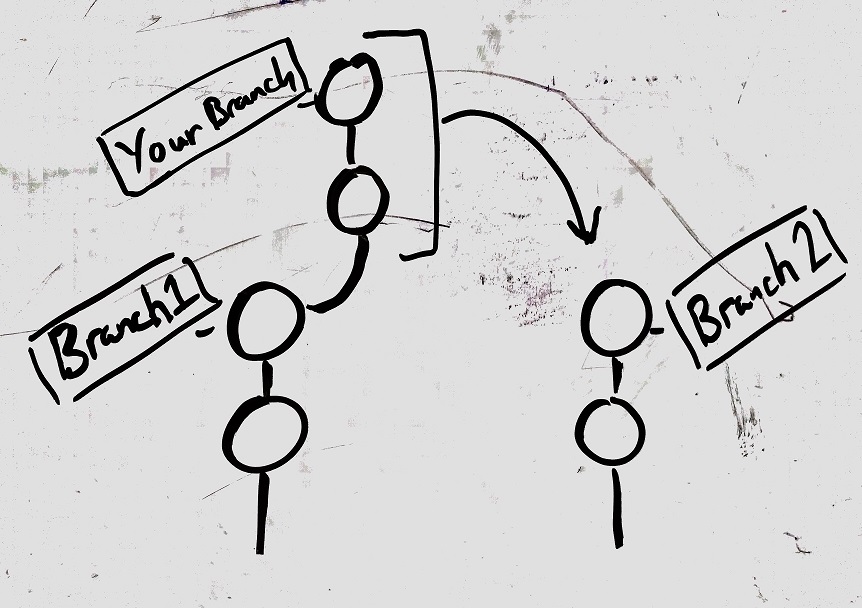 Your Branch
Branch1
Branch 2